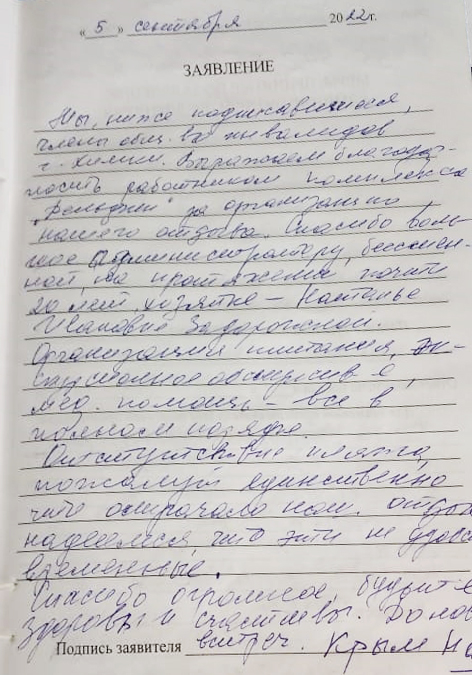 « 5 » сентября 2022 г.
ЗАЯВЛЕНИЕ
Мы, ниже подписавшиеся,
члены общ. ва инвалидов
г. Химки. Выражаем благодар-
ность работникам комплекса
за организацию
нашего отдыха. Спасибо боль-
шое администратору, бессмен-
ной, на протяжении почти
20 лет, хозяйке – Наталье
Ивановне Задорожной.
Организация питания, эк-
скурсионное обслужив-е,
мед. помощь – все в
полном порядке.
Отсутствие пляжа,
пожалуй единственно
что омрачало наш отды
надеемся, что эти не удобс
временные.
Спасибо огромное, будьте
здоровы и счастливы. До нов
встреч. Крым На
Подпись заявителя